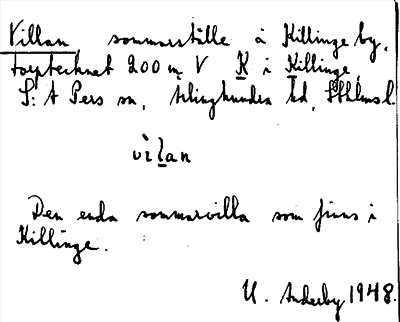 Villan, sommarställe å Killinge by,
torptecknet 200 m V K i Killinge,
S:t Pers sn, Ärlinghundra hd, Sthlms l.
vìlan
Den enda sommarvilla som finns i
Killinge.
U. Anderby 1948.